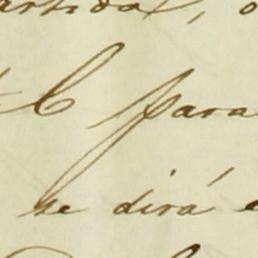 partida, o
C para
se dirá e